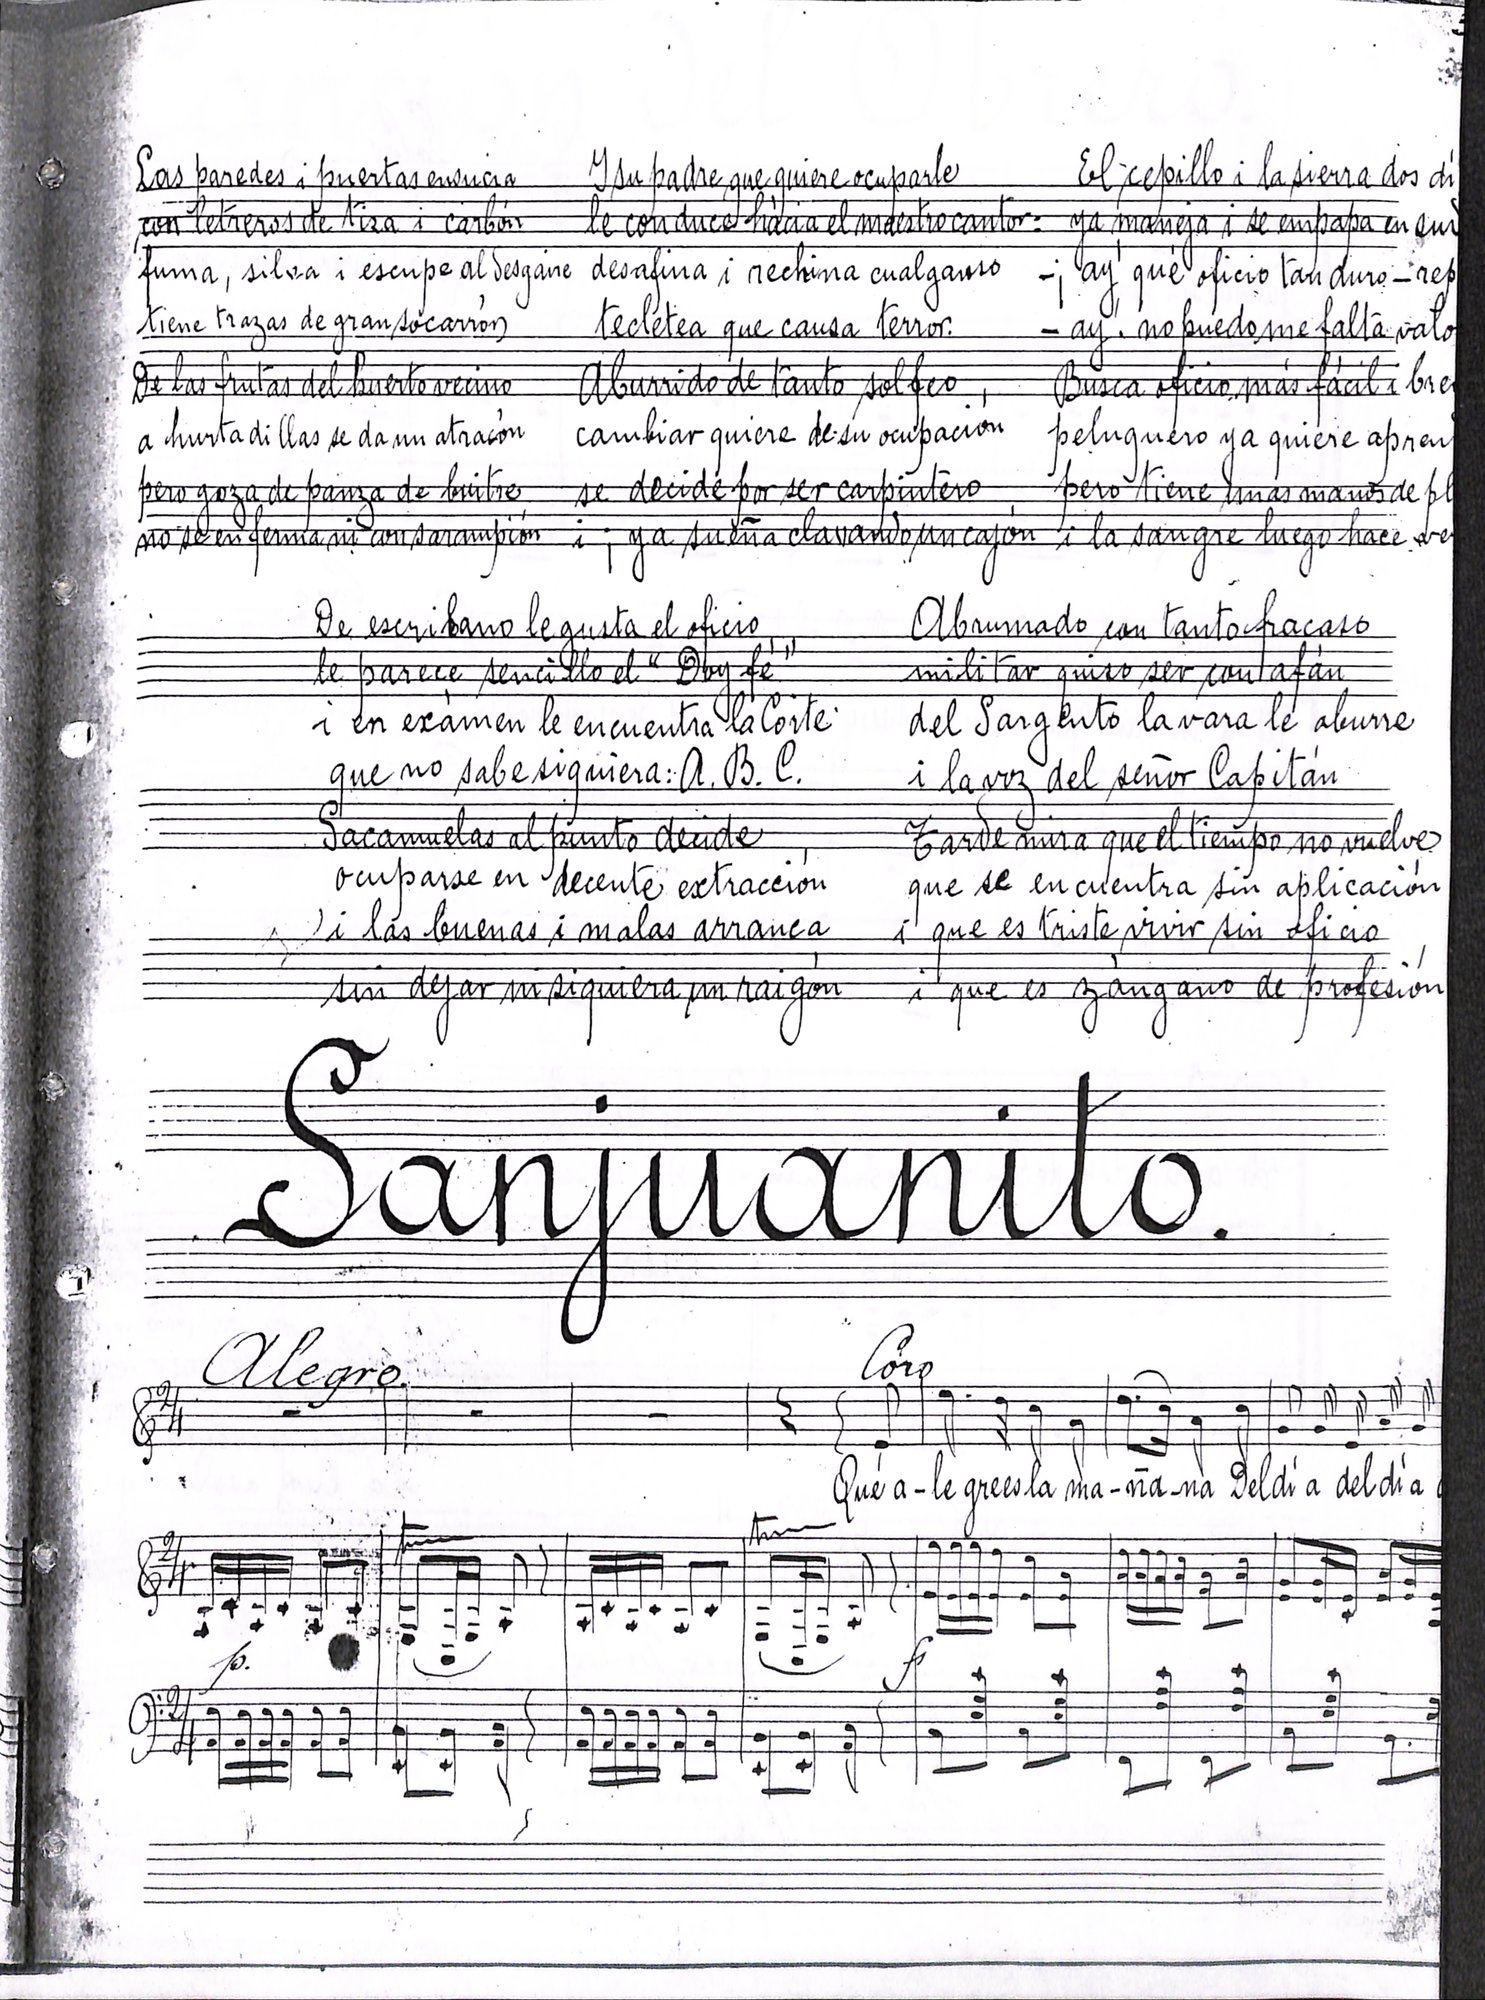 Las paredes i puertas ensucia
con letreros de tiza i carbón
fuma, silva i escupe al desgaire
tiene trazas de gran socarrón
De las frutas del huerto vecino
a hurtadillas se da un atracón
pero goza de panza de buitre
no se enferma ni con sarampión
I su padre que quiere ocuparle
le conduce hàcia el maestro cantor:
desafina i rechina cual ganso
tecletea que causa terror.
Aburrido de tanto solfeo,
cambiar quiere de su ocupación
se decide por ser carpintero
i ¡ ya sueña clavando un cajón
El cepillo i la sierra dos dí
ya maneja i se empapa en sud
-¡ ay qué oficio tan duro - rep
- ay! no puedo, me falta valo
Busca oficio más fácil i bre
peluquero ya quiere apren
pero tiene unas manos de pl
i la sangre luego hace ve
De escribano le gusta el oficio
le parece sencillo el "Doy fé"
i en exàmen le encuentra la Corte
que no sabe siquiera: A. B. C.
Sacamuelas al punto decide,
ocuparse en decente extracción
i las buenas i malas arranca
sin dejar ni siquiera un raigón
Abrumado con tanto fracaso
militar quiso ser con afán
del Sargento la vara le aburre
i la voz del señor Capitán
Tarde mira que el tiempo no vuelve
que se encuentra sin aplicación
i que es triste vivir sin oficio
i que es zàngano de profesión
Sanjuanito.
Alegro.
Coro
2/4
Qué a-le grees la ma-ña-na Del dí a del dí a
2/4
tr
tr
p.
f
2/4